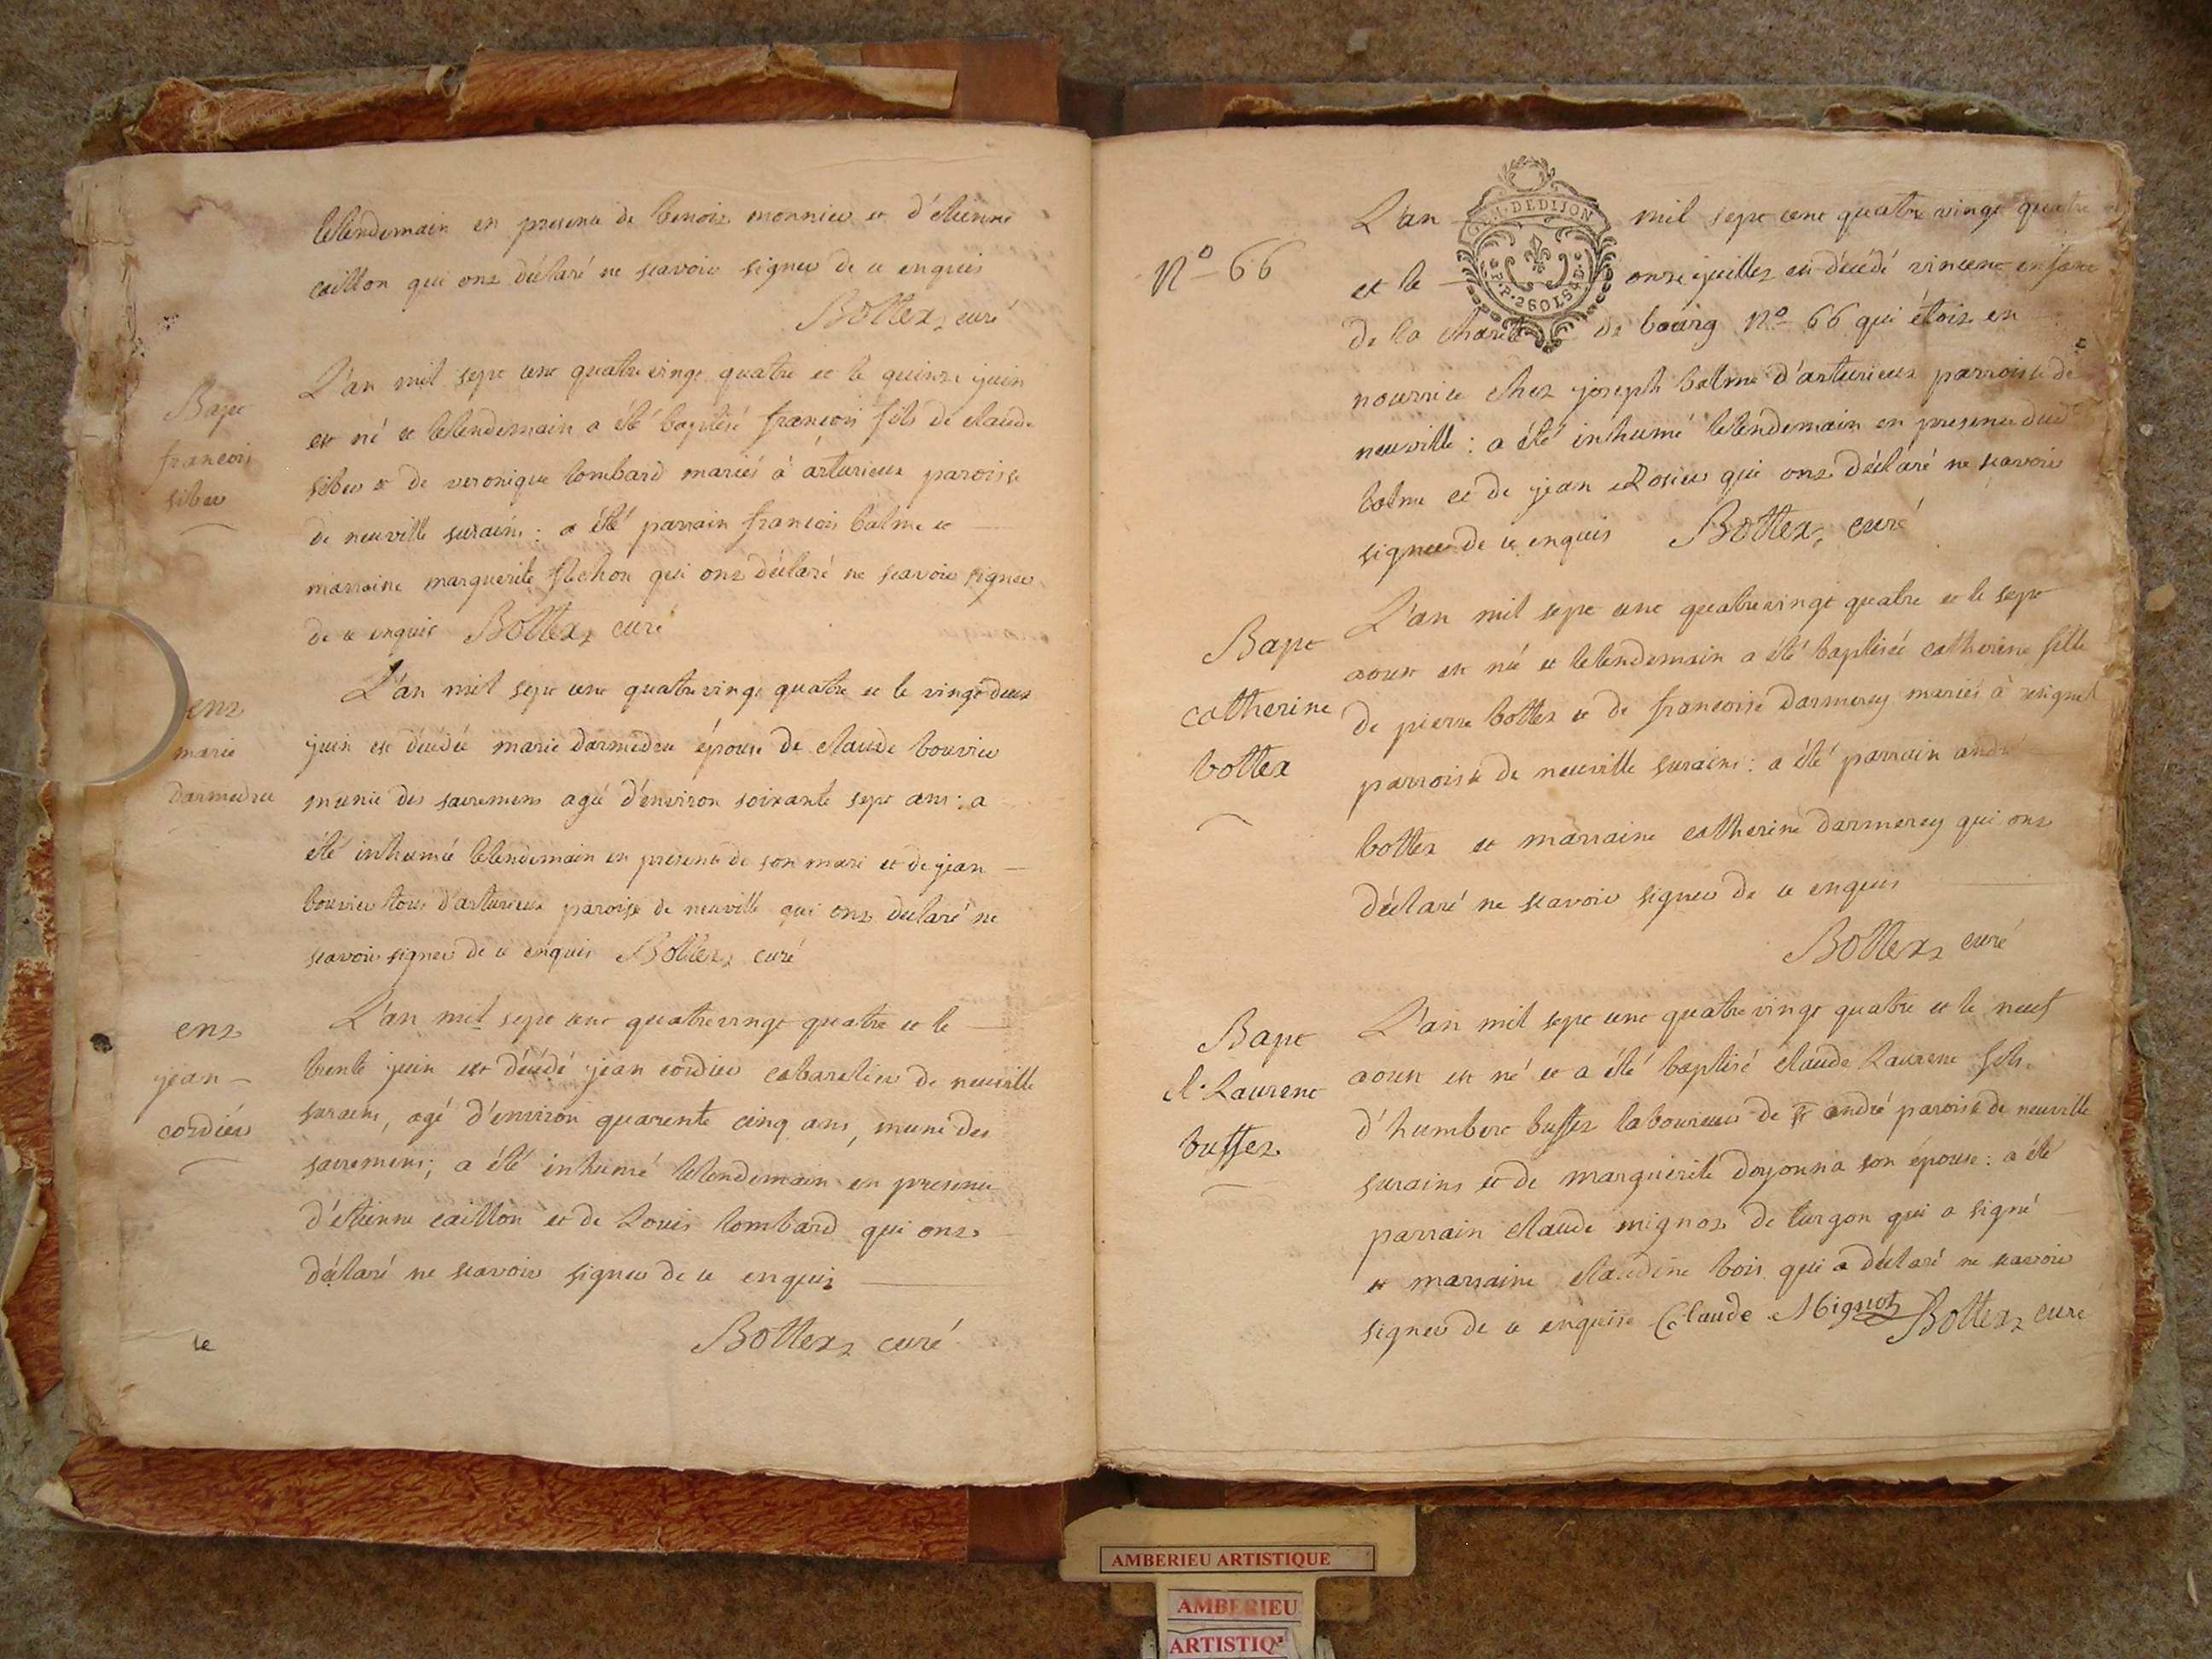 lelendemain en presence de benoit monnier et d'étienne
caillon qui ont déclaré ne scavoir signer de ce enquis
Bottex, curé
Bapt
francois
siber
L'an mil sept cent quatrevingt quatre et le quinze juin
est né et lelendemain a été baptisé francois fils de claude
siber et de veronique lombard mariés à arturieux paroisse
de neuville surains : a été parrain francois balme et
marraine marguerite qui ont déclaré ne scavoir signer
de ce enquis Bottex, curé
ent
marie
darmedru
L'an mil sept cent quatrevingt quatre et le vingt deux
juin est décédée marie darmedru épouse de claude bouvier
munie des sacremens agée d'environ soixante sept ans : a
été inhumée lelendemain en presence de son mari et de jean
bouvier tous d'arturieux paroisse de neuville qui ont declaré ne
scavoir signer de ce enquis Bottex, curé
ent
jean
cordier
L'an mil sept cent quatrevingt quatre et le
trente juin est décédé jean cordier cabaretier de neuville
surains, agé d'environ quarente cinq ans, muni des
sacremens; a été inhumé lelendemain en presence
d'étienne caillon et de Louis lombard qui ont
déclaré ne scavoir signer de ce enquis
Bottex, curé
le
GEN. DE DIJON
P. P. 2 SOLS 4 D.
N° 66
L'an mil sept cent quatre vingt quatre
et le onze juillet est décédé vincent enfant
de la charité de bourg N° 66 qui étoit en
nourrice chez joseph balme d'arturieux parroisse de
neuville : a été inhumé lelendemain en presence dud
balme et de jean Rosier qui ont déclaré ne scavoir
signer de ce enquis Bottex, curé
Bapt
catherine
bottex
L'an mil sept cent quatrevingt quatre et le sept
aoust est née et lelendemain a été baptisée catherine fille
de pierre bottex et de francoise darmerey mariés à resignel
parroisse de neuville surains : a été parrain andré
bottex et marraine catherine darmerey qui ont
déclaré ne scavoir signer de ce enquis
Bottex, curé
Bapt
cl. Laurent
buffet
L'an mil sept cent quatre vingt quatre et le neuf
aoust est né et a été baptisé claude Laurent fils
d'humbert buffet laboureur de st andré paroisse de neuville
surains et de marguerite doyonna son épouse : a été
parrain claude mignot de turgon qui a signé
et marraine claudine bois qui a déclaré ne scavoir
signer de ce enquise Claude Mignot Bottex, curé
AMBERIEU ARTISTIQUE
AMBERIEU
ARTISTIQ